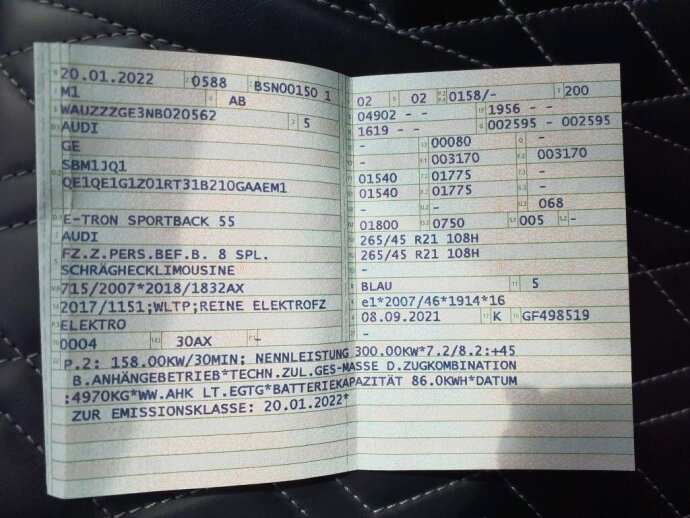 20.01.2022 0588 BSN00150 1
M1 AB
WAUZZZGE3NB020562 5
AUDI
GE
SBM1JQ1
QE1QE1G1Z01RT31B210GAAEM1
E-TRON SPORTBACK 55
AUDI
FZ.Z.PERS.BEF.B. 8 SPL.
SCHRÄGHECKLIMOUSINE
715/2007*2018/1832AX
2017/1151;WLTP;REINE ELEKTROFZ
ELEKTRO
0004 30AX -
02 02 0158/- 200
04902 - - 1956 - -
1619 - - 002595 - 002595
- 00080 -
- 003170 003170
01540 01775 -
01540 01775 -
- - 068
01800 0750 005 -
265/45 R21 108H
265/45 R21 108H
-
BLAU 5
e1*2007/46*1914*16
08.09.2021 K GF498519
-
P.2: 158.00KW/30MIN; NENNLEISTUNG 300.00KW*7.2/8.2:+45
B.ANHÄNGEBETRIEB*TECHN.ZUL.GES-MASSE D.ZUGKOMBINATION
:4970KG*WW.AHK LT.EGTG*BATTERIEKAPAZITÄT 86.0KWH*DATUM
ZUR EMISSIONSKLASSE: 20.01.2022*